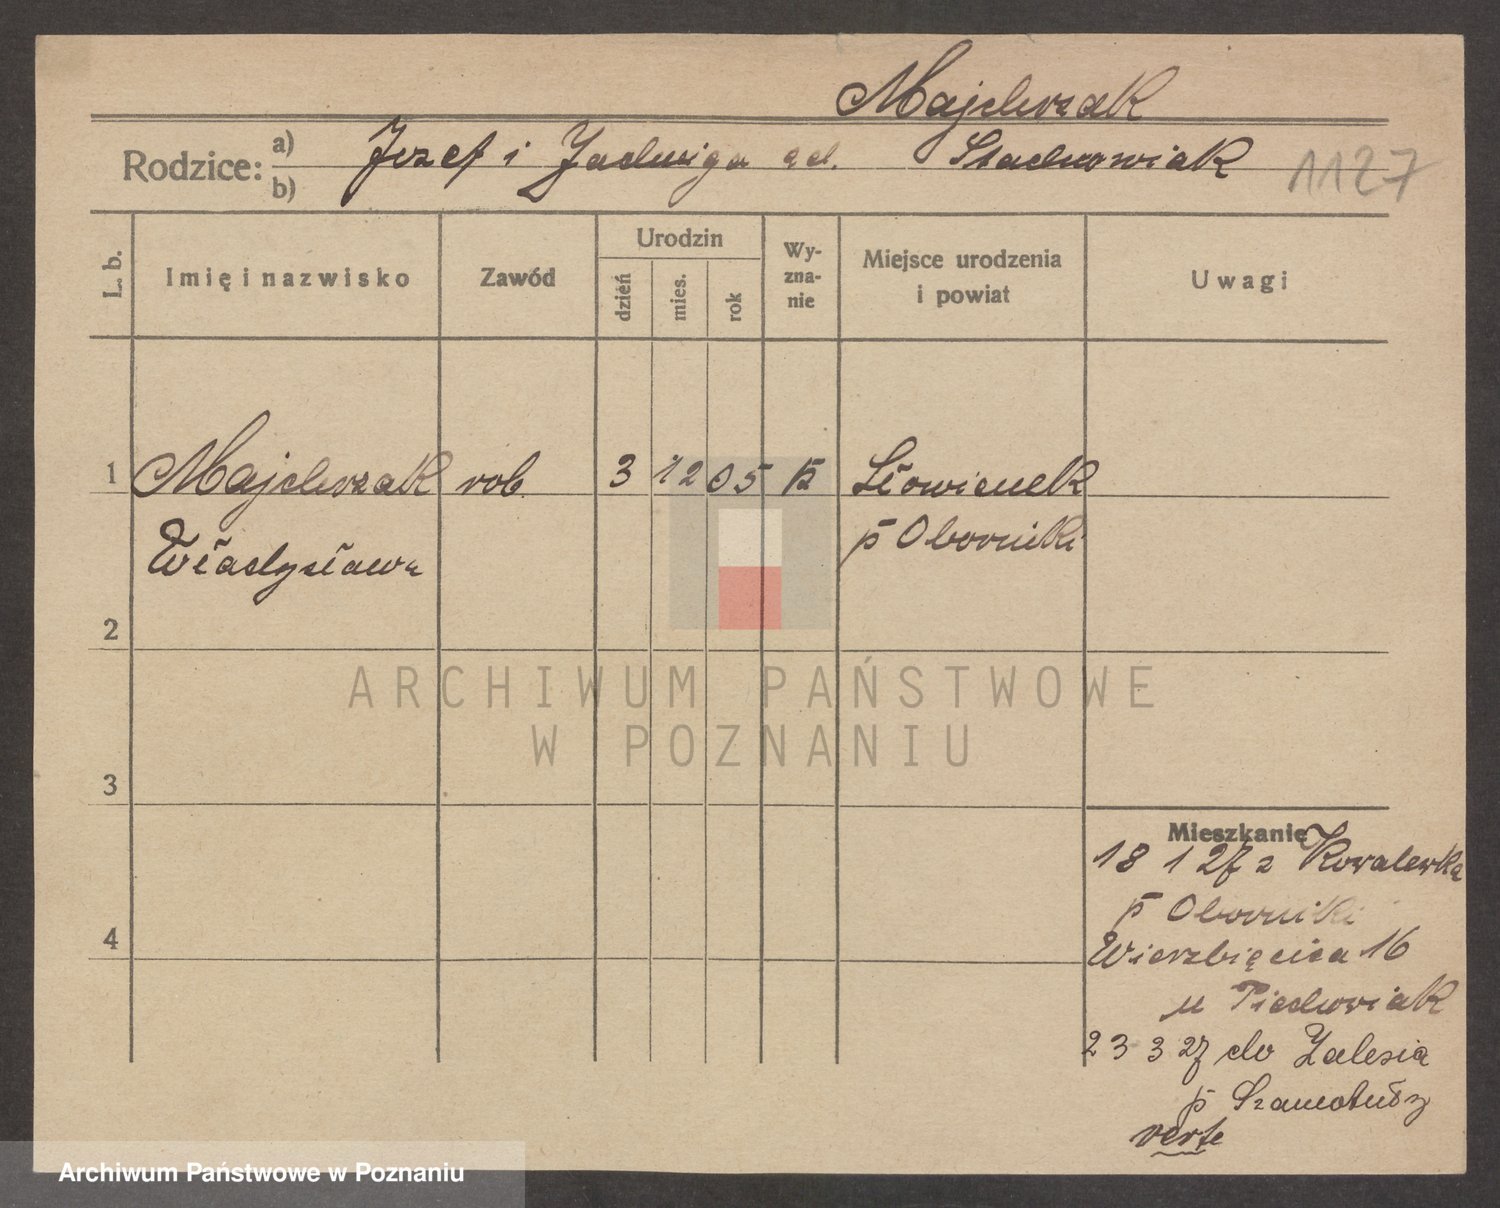 Majchrzak
Rodzice: a) Jozef i Jadwiga z d. Stachowiak 1127
b)
L. b. Imię i nazwisko Zawód Urodzin dzień mies. rok Wy-zna-nie Miejsce urodzenia i powiat Uwagi
1 Majchrzak rob. 3 12 05 K Słowienek
Władysława p Oborniki
2
ARCHIWUM PAŃSTWOWE
W POZNANIU
3
Mieszkanie
18 1 27 z Kowalewka
p Oborniki
4
Wierzbięcica 16
u Piechowiak
23 3 27 do Zalesia
p Szamotuły
verte
Archiwum Państwowe w Poznaniu